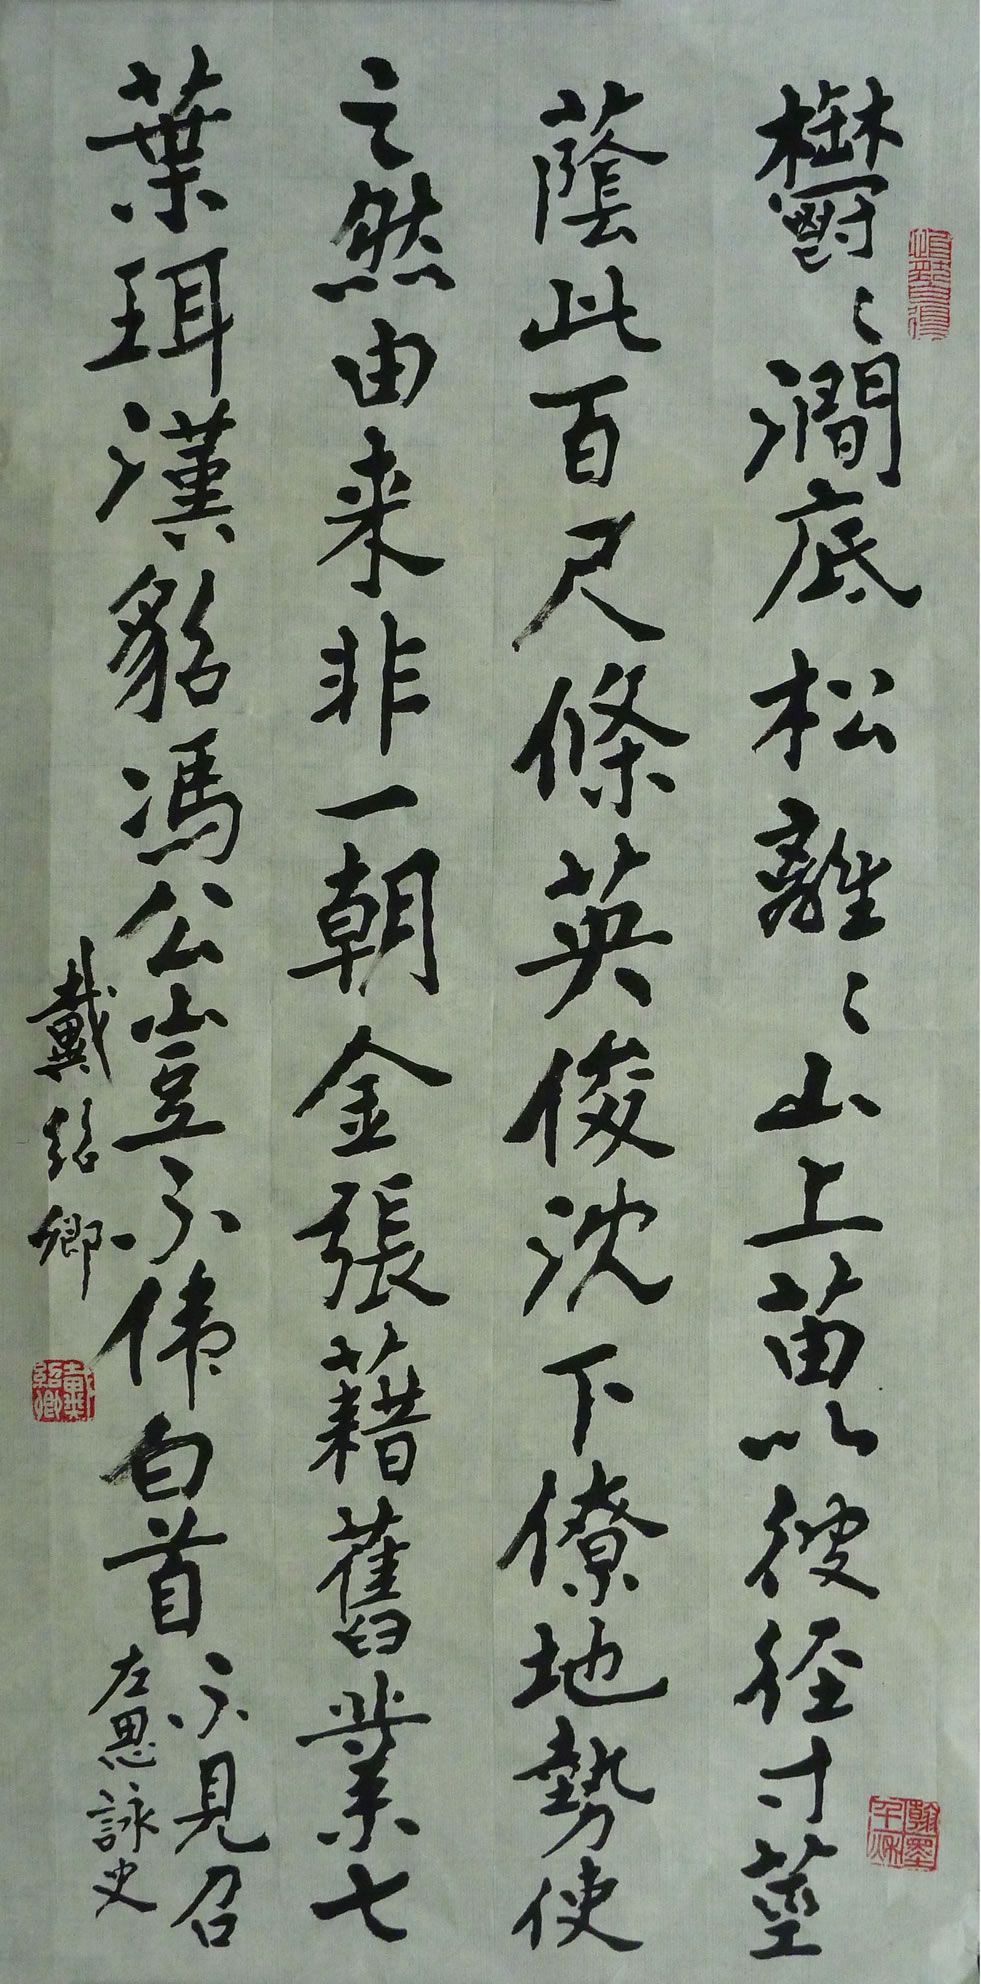 欝〻澗底松離〻山上苗以彼径寸莖
蔭此百尺條英俊沈下僚地勢使
之然由来非一朝金張藉舊業七
葉珥漢貂馮公豈不偉白首
不見召
左思詠史
戴紹卿
戴紹卿
翰墨千秋